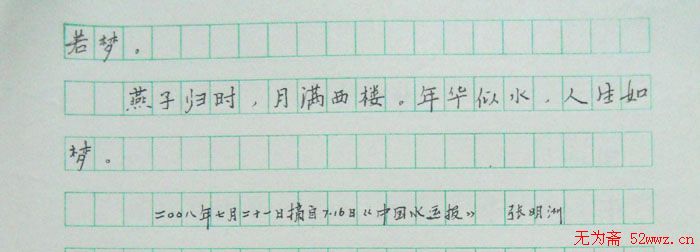 若梦。
燕子归时，月满西楼。年华似水，人生如
梦。
二00八年七月二十一日摘自7.16日《中国水运报》 张明洲
无为斋 52wwz.cn